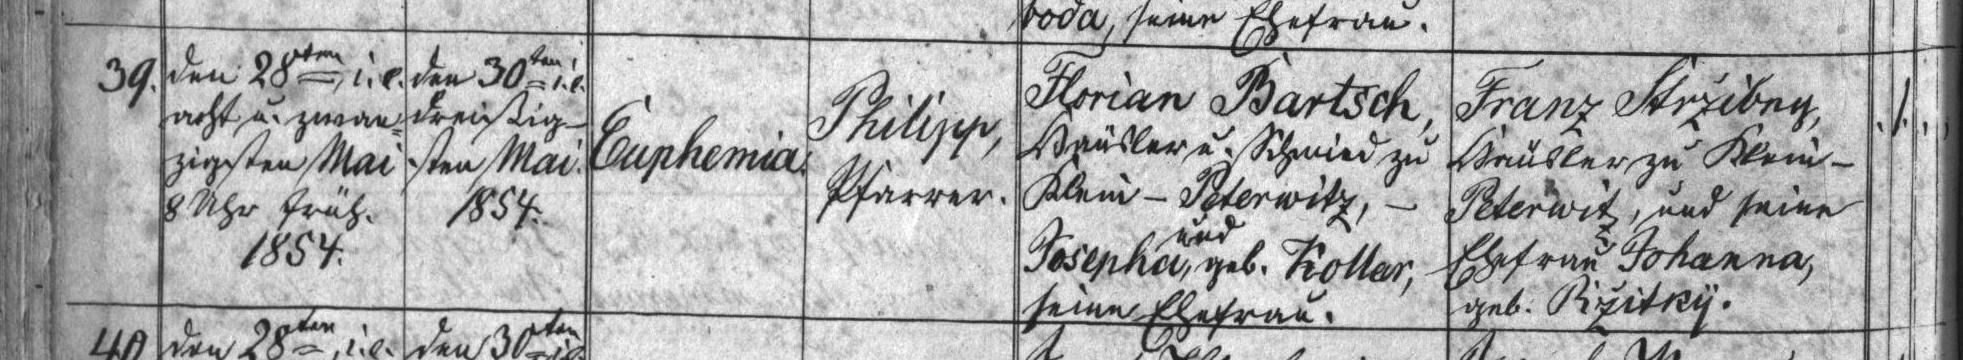 boda, seine Ehefrau.
39.
den 28sten, i.e.
acht u. zwan=
zigsten Mai
8 Uhr früh.
1854.
den 30ten i.e.
dreißig-
sten Mai.
1854.
Euphemia.
Philipp,
Pfarrer.
Florian Bartsch,
Häusler u. Schmied zu
Klein-Peterwitz, -
und
Josepha, geb. Kollar,
seine Ehefrau.
Franz Stržibny,
Häusler zu Klein-
Peterwitz, und seine
Ehefrau Johanna,
geb. Ržitky.
./.
40
den 28sten, i.e.
den 30sten